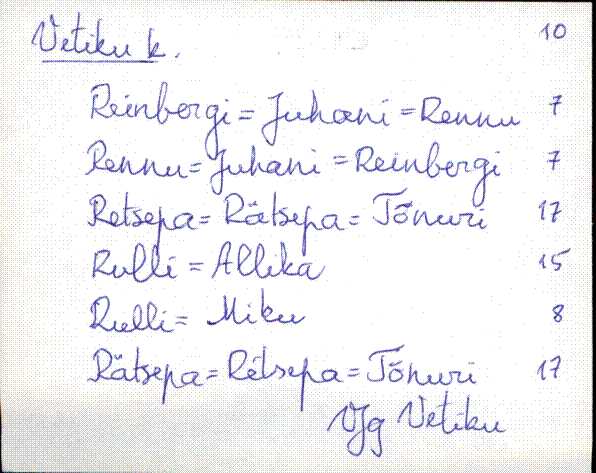 Vetiku k. 10
Reinbergi = Juhani = Rennu 7
Rennu = Juhani = Reinbergi 7
Retsepa = Rätsepa = Tõnuri 17
Rulli = Allika 15
Rulli = Miku 8
Rätsepa = Retsepa = Tõnuri 17
VJg Vetiku